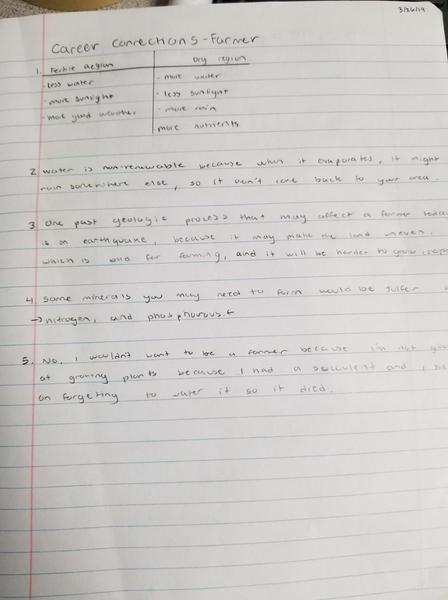 3/26/19
Career Connections - Farmer
1. Fertile Region Dry region
· less water · more water
· more sunlight · less sunlight
· more good weather · more rain
more nutrients
2. water is non-renewable because when it evaporates, it might
rain somewhere else, so it won't come back to your area.
3. One past geologic process that may affect a farmer today
is an earthquake, because it may make the land uneven.
which is bad for farming, and it will be harder to grow crops
4. Some minerals you may need to farm would be sulfer
→ nitrogen, and phosphorous.
5. No, I wouldn't want to be a farmer because I'm not
at growing plants because I had a succulent and I
on forgetting to water it so it died.